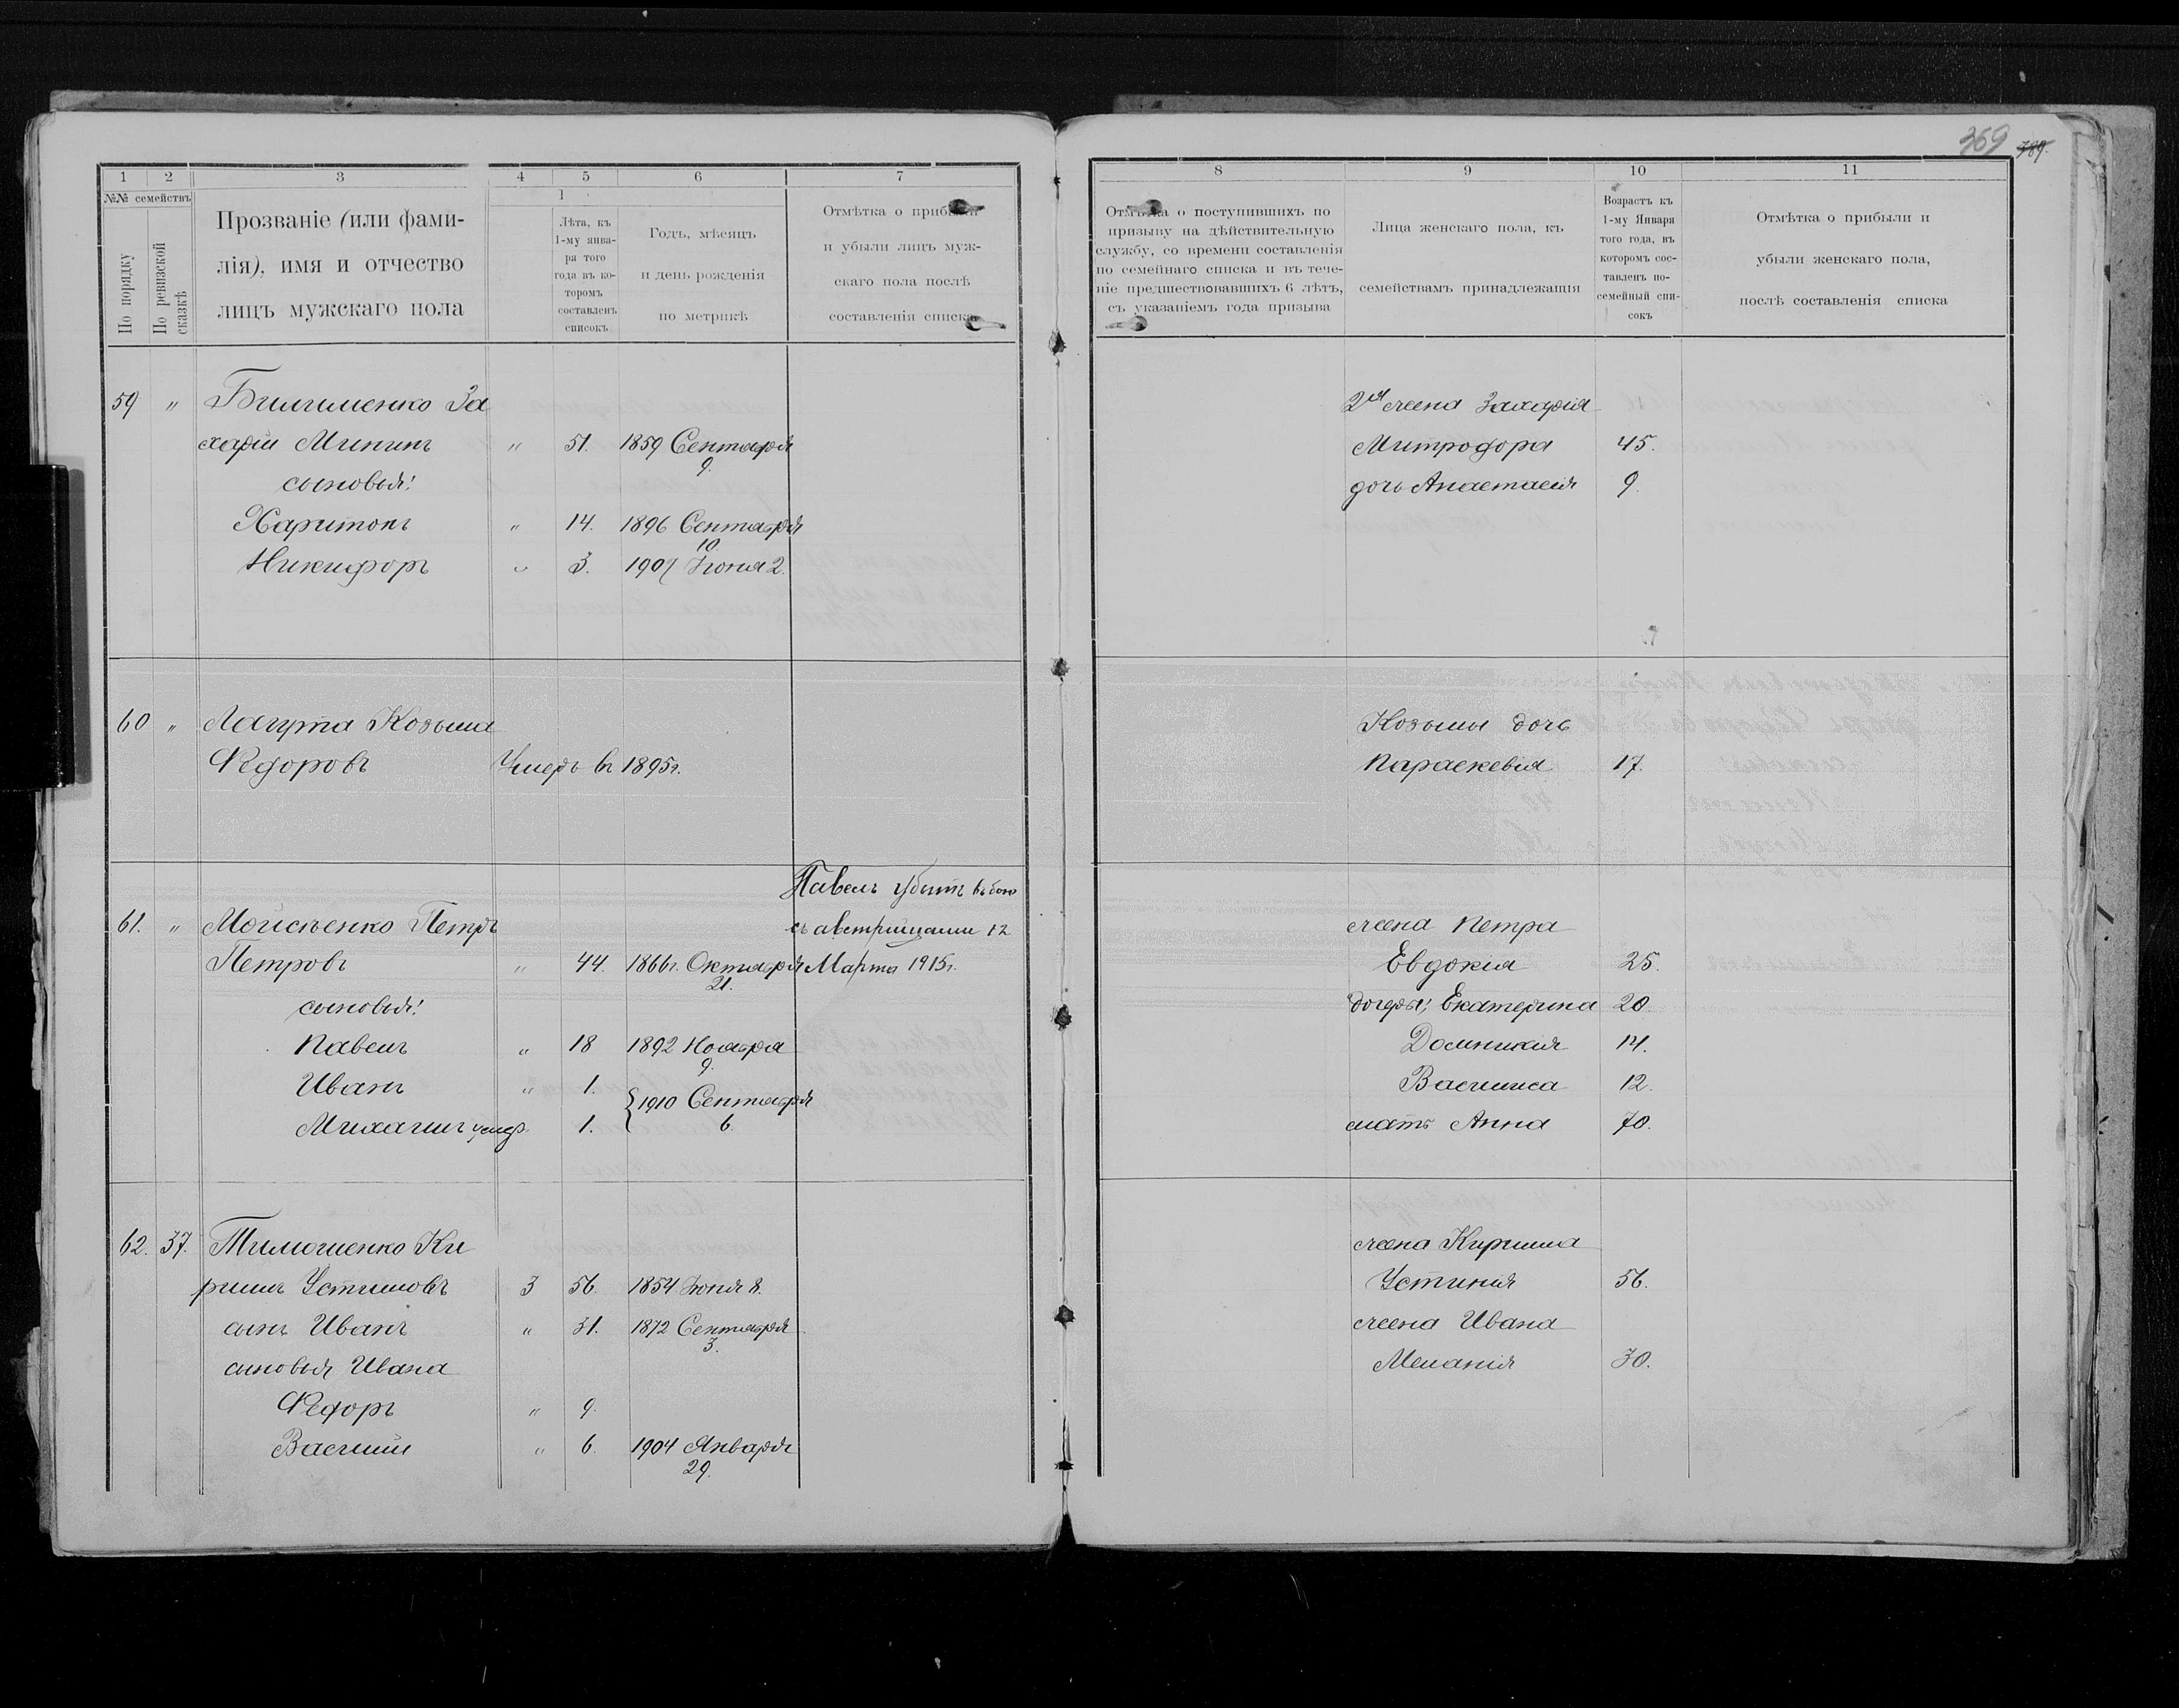 369 789.
1 2 3 4 5 6 7
№№ семействъ
По порядку
По ревизской сказкѣ
Прозваніе (или фами-
лія), имя и отчество
лицъ мужскаго пола
Лѣта, къ
1-му янва-
ря того
года въ ко-
торомъ
составленъ
списокъ
Годъ, мѣсяцъ
и день рожденія
по метрикѣ
Отмѣтка о прибыли
и убыли лицъ муж-
скаго пола послѣ
составленія списка
59 " Билименко За
харій Мининъ " 51. 1859 Сентября
9.
сыновья:
Харитонъ " 14. 1896 Сентября
10
Никифоръ " 3. 1907 Іюня 2.
60 " Лагута Козьма
Федоровъ Умеръ въ 1895г.
Павелъ убитъ въ бою
61. " Мойсѣенко Петръ съ австрійцами 12
Петровъ " 44. 1866г. Октября Марта 1915г.
21.
сыновья:
Павелъ " 18 1892 Ноября
9.
Иванъ " 1. 1910 Сентября
Михаилъ умер. 1. 6.
62. 37. Тимошенко Ки
риллъ Устимовъ 3 56. 1854 Іюня 8.
сынъ Иванъ " 31. 1872 Сентября
3.
сыновья Ивана
Федоръ " 9.
Василій " 6. 1904 Января
29.
8 9 10 11
Отмѣтка о поступившихъ по
призыву на дѣйствительную
службу, со времени составленія
по семейнаго списка и въ тече-
ніе предшествовавшихъ 6 лѣтъ,
съ указаніемъ года призыва
Лица женскаго пола, къ
семействамъ принадлежащія
Возрастъ къ
1-му Января
того года, въ
которомъ сос-
тавленъ по-
семейный спи-
сокъ
Отмѣтка о прибыли и
убыли женскаго пола,
послѣ составленія списка
2я жена Захарія
Митродора 45.
дочь Анастасія 9.
Козьмы дочь
Параскевія 17.
жена Петра
Евдокія 25.
дочеры: Екатерина 20
Домникія 14.
Василиса 12.
мать Анна 70.
жена Кирилла
Устинія 56.
жена Ивана
Меланія 30.